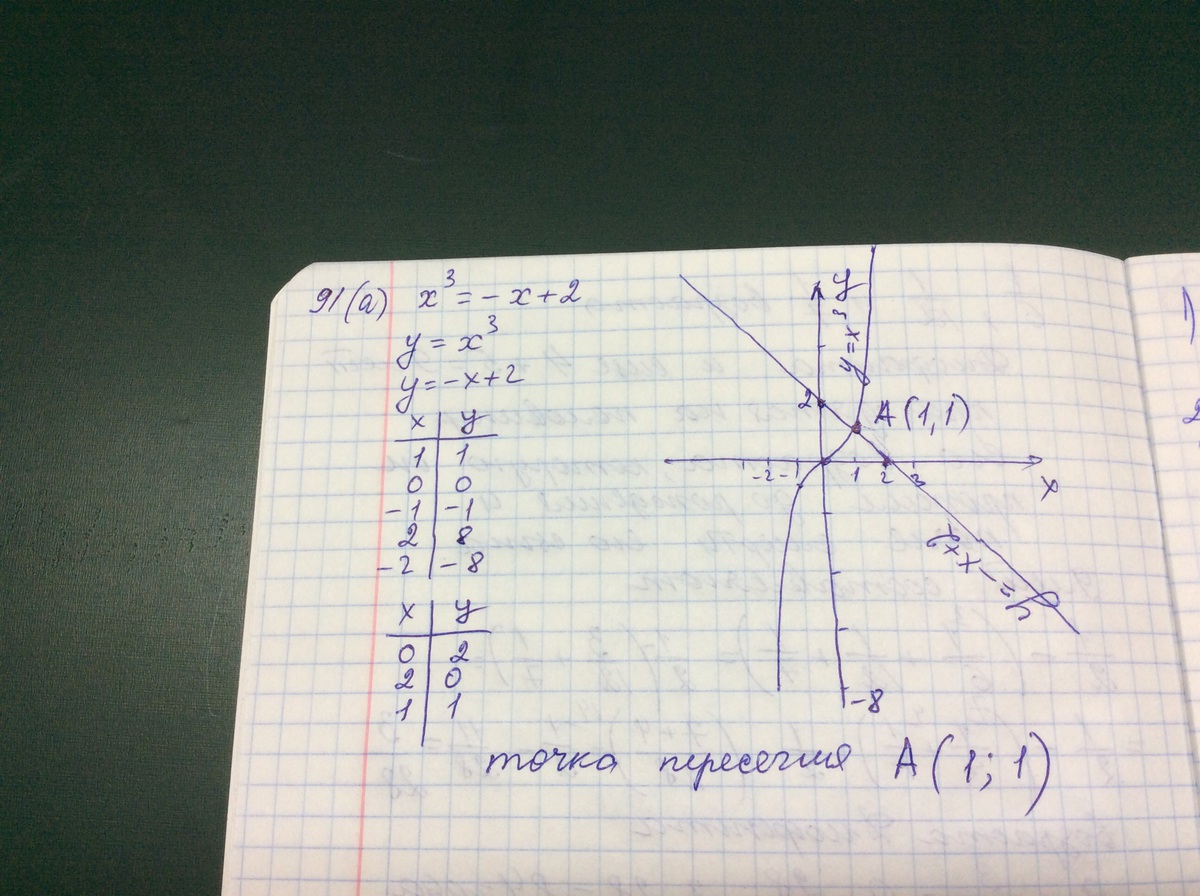 91(а) x³ = - x + 2
y = x³
y = -x + 2
x y
1 1
0 0
-1 -1
2 8
-2 -8
x y
0 2
2 0
1 1
y
y = x³
2
A (1, 1)
-2 -1 1 2 3
x
y = -x+2
-8
точка пересечия A (1; 1)
1)
2